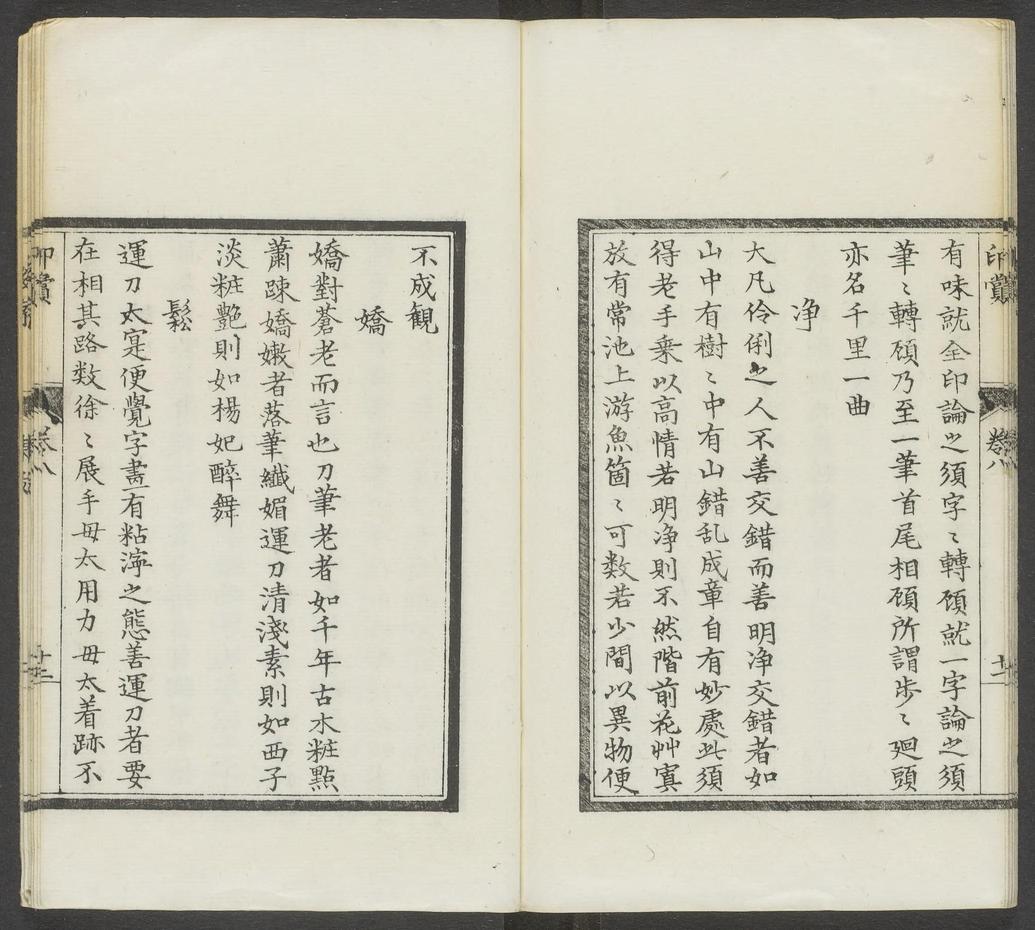 印賞
卷八
十一
有味就全印論之須字〻轉顧就一字論之須
筆〻轉顧乃至一筆首尾相顧所謂步〻廻頭
亦名千里一曲
净
大凡伶俐之人不善交錯而善明净交錯者如
山中有樹〻中有山錯乱成章自有妙處此須
得老手乗以高情若明净則不然階前花艸寘
放有常池上游魚箇〻可数若少間以異物便
不成観
嬌
嬌對蒼老而言也刀筆老者如千年古木粧點
蕭踈嬌嫩者落筆纖媚運刀清淺素則如西子
淡粧艷則如楊妃醉舞
鬆
運刀太寔便覺字畫有粘濘之態善運刀者要
在相其路数徐〻展手毋太用力毋太着跡不
印賞
卷八
十二